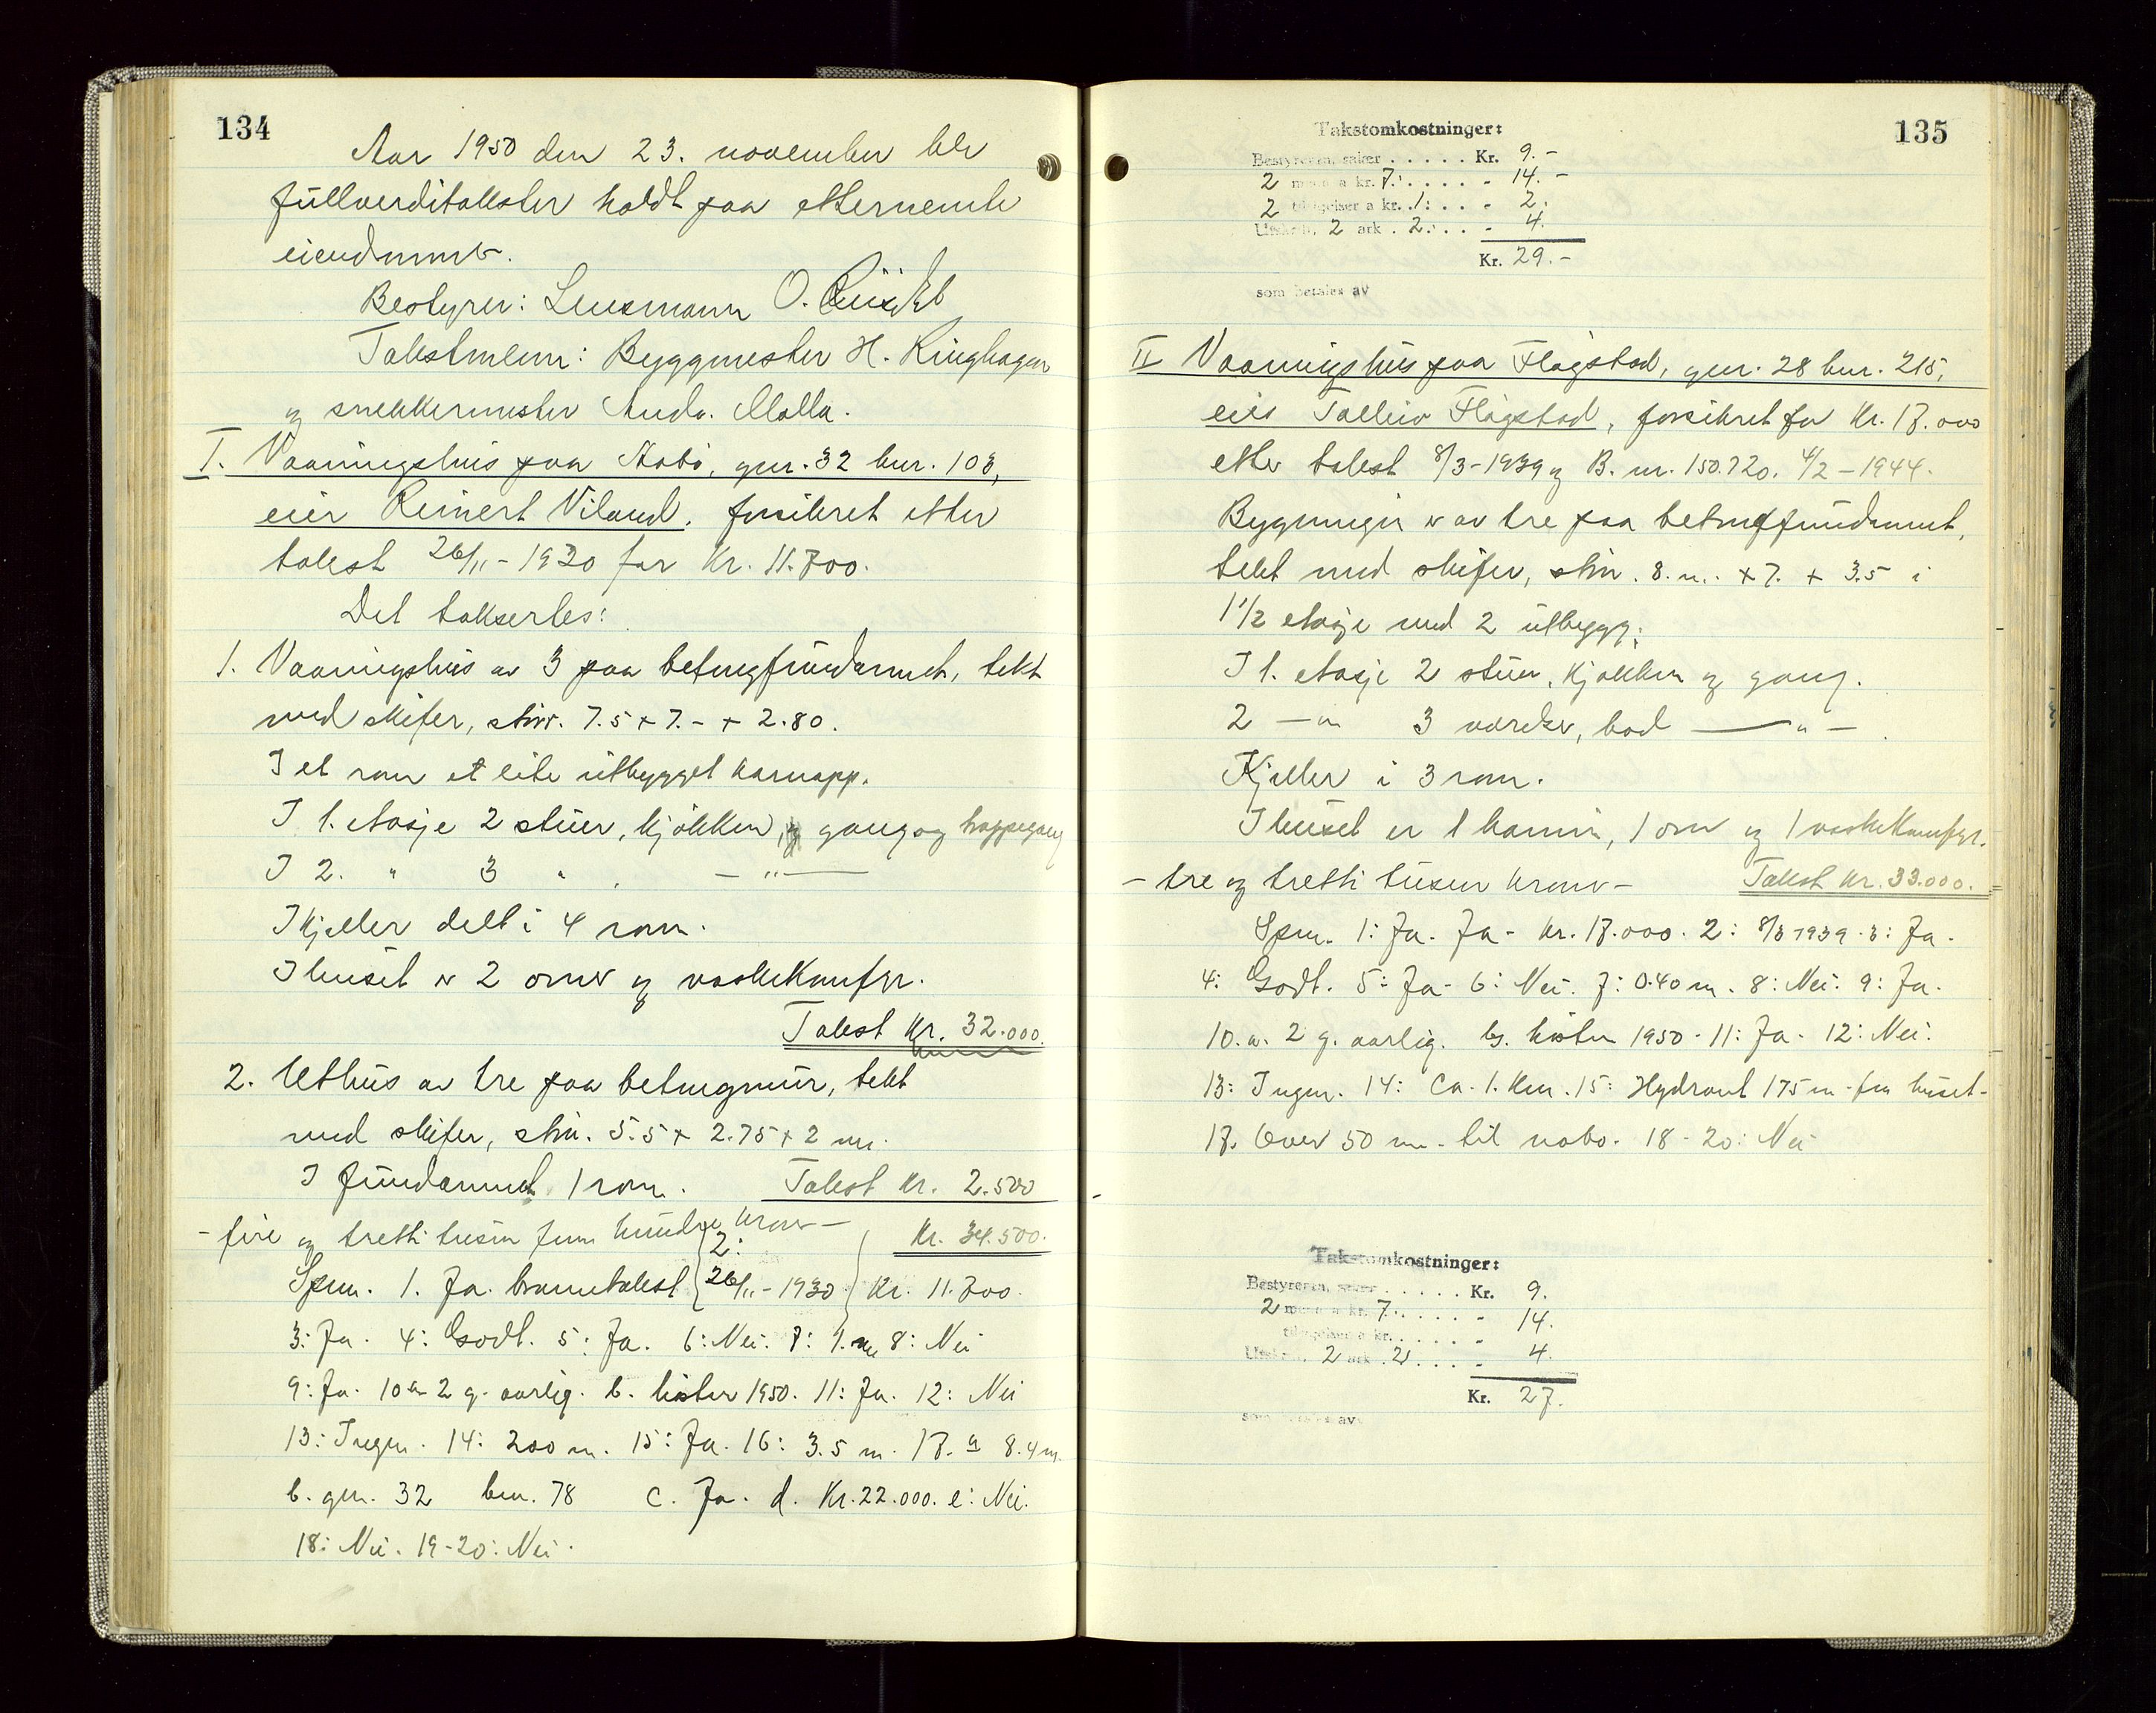 134
Aar 1950 den 23. november ble
fullverditakster holdt paa etternemte
eiendommer.
Bestyrer: Lensmann O.
Takstmenn: Byggmester H. Ringhagen
og snekkermester Andr. Molla.
I. Vaaningshus paa Aabø, gnr. 32 bnr. 103,
eier Reinert Viland. forsikret etter
takst 26/11-1930 for Kr. 11.700.
Det takserles:
1. Vaaningshus av 3 paa betongfundament, tekt
med skifer, stør. 7.5 + 7.- + 2.80.
I et rom et lite utbygget karnapp.
I 1. etasje 2 stuer, kjøkken, gang og trappegang
I 2. " 3 " . — " —
I kjeller delt i 4 rom.
I huset er 2 omer og vaskekomfyr.
Takst Kr. 32.000.
2. Uthus av tre paa betongmur, tekt
med skifer, stør. 5.5 + 2.75 + 2 m.
I fundament 1 rom. Takst Kr. 2.500
- fire og tretti tusen fem hundre kroner — Kr. 34.500.
Spm. 1. Ja. branntakst 2: 26/11-1930 Kr. 11.700.
3: Ja. 4: Godt. 5: Ja. 6: Nei. 7: 1. m 8: Nei
9: Ja. 10 a 2 g. aarlig. b. høsten 1950. 11: Ja. 12: Nei
13: Ingen. 14: 200 m. 15: Ja. 16: 3.5 m. 17. a 8.4 m.
b. gnr. 32 bnr. 78 c. Ja. d. Kr. 22.000. e: Nei.
18: Nei. 19-20: Nei.
135
Takstomkostninger:
Bestyreren, saker . . . . . Kr. 9.-
2 menn a kr. 7. . . . . - 14.-
2 tilsigelser a kr. 1: . . - 2.
Utskr. 2 ark . 2. . . - 4.
Kr. 29.-
som betales av
II Vaaningshus paa Flagstad, gnr. 28 bnr. 215,
eier Talleiv Flagstad, forsikret for Kr. 17.000
etter takst 8/3-1939 og B. nr. 150.720. 4/2-1944.
Bygningen er av tre paa betongfundament,
tekt med skifer, stør. 8. m. + 7. + 3.5 i
1 1/2 etasje med 2 utbygg:
I 1. etasje 2 stuer, kjøkken og gang.
2 — " 3 værelser, bad — " — .
Kjeller i 3 rom.
I huset er 1 kamin, 1 omn og 1 vaskekomfyr.
- tre og tretti tusen kroner - Takst Kr. 33.000.
Spm. 1: Ja. Ja - Kr. 17.000. 2: 8/3 1939. 3: Ja.
4: Godt. 5: Ja. 6: Nei. 7: 0.40 m. 8: Nei. 9: Ja.
10. a. 2 g. aarlig. b. høsten 1950. 11: Ja. 12: Nei.
13: Ingen. 14: Ca. 1. km. 15: Hydrant 175 m. fra huset.
17. Over 50 m. til nabo. 18-20: Nei
Takstomkostninger:
Bestyreren, saker . . . . . Kr. 9.
2 menn a kr. 7. . . . . - 14.
tilsigelser a kr. . . . . -
Utskr. 2 ark . 2 . . . - 4.
Kr. 27.
som betales av